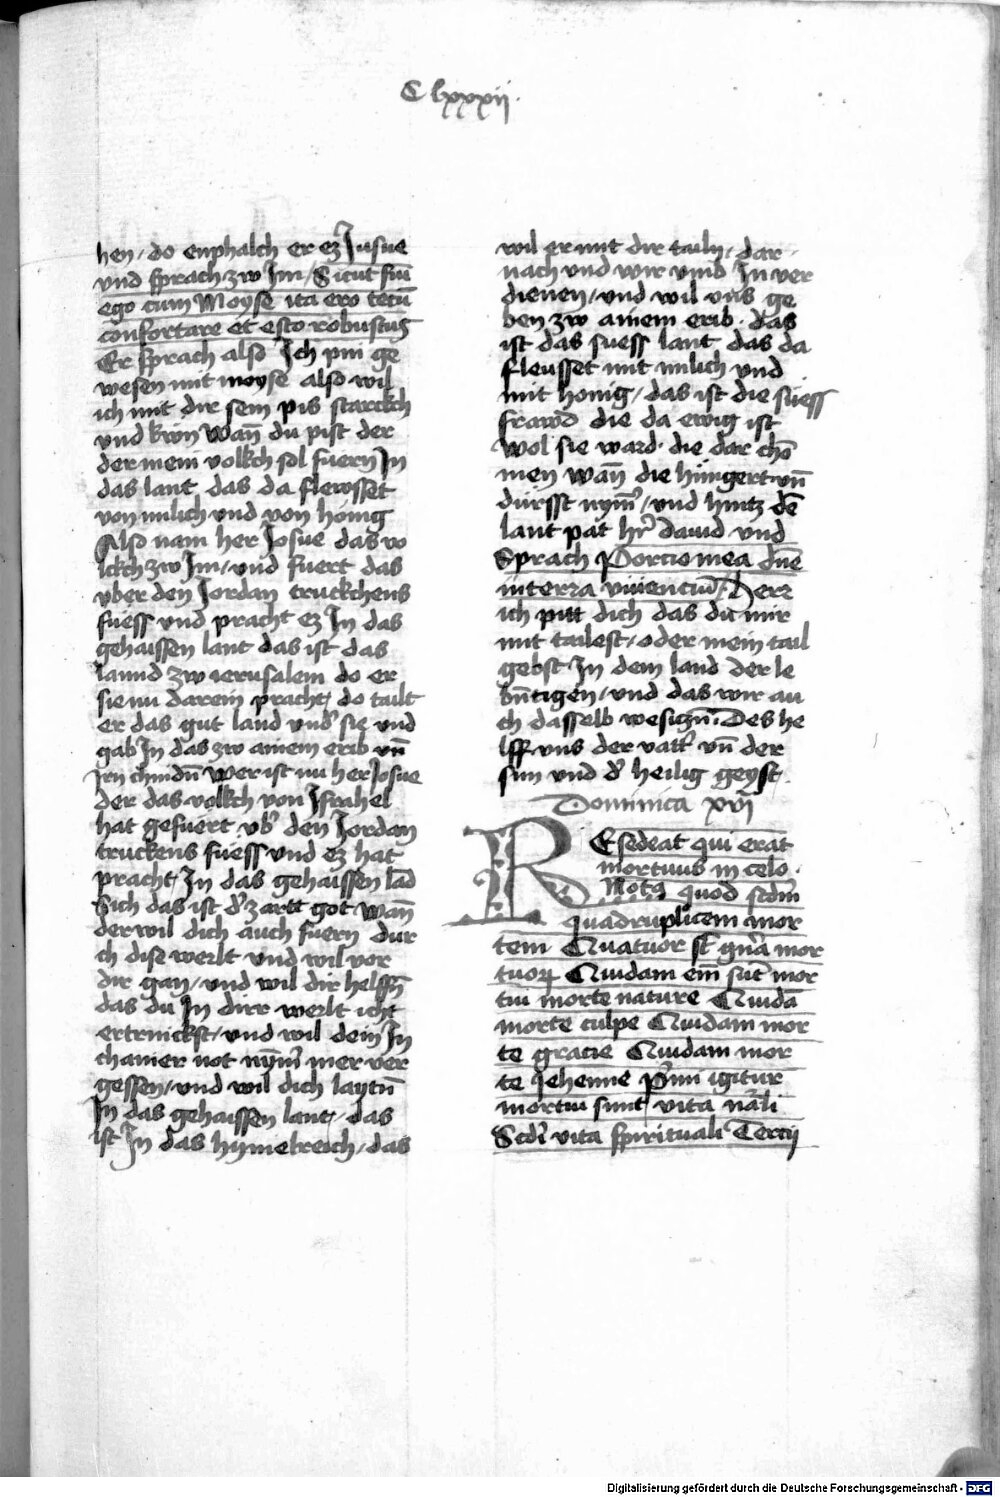 Clxxxij.
hen / do enphalch er ez Iosue
vnd sprach zw Im / Sicut fui
ego cum Moyse ita ero tecū
confortare et esto robustus
Er sprach also Ich pin ge
wesen mit moyse also wil
ich mit dir sein pis starckch
vnd kwn wañ du pist der
der mein volkch sol fuern In
das lant das da flewsset
von milich vnd von honig
Also nam her Josue das vo
lckch zw Im / vnd fuert das
vber den Jordan truckchens
fuess vnd pracht ez In das
gehaissen lant das ist das
lannd zw ierusalem do er
sie nu darein pracht / do tailt
er das gut land vndˀ sie vnd
gab In das zw ainem erib vñ
irn chindñ wer ist nu her Josue
der das volkch von Israhel
hat gefuert vbˀ den Jordan
truckens fuess vnd ez hat
pracht In das gehaissen lād
Sich das ist dˀ zartt got wañ
der wil dich auch fuern dur
ch dise werlt vnd wil vor
dir gan / vnd wil dir helffñ
das du In dirr werlt icht
ertrinckst / vnd wil dein In
chainer not nȳmˀ mer ver
gessen / vnd wil dich laytñ
In das gehaissen lant / das
ist In das hymelreich / das
wil er mit dir tailn / dar
nach vnd wir vmb In ver
dienen / vnd wil vns ge
ben zw ainem erib . das
ist das suess lant das da
fleusset mit milich vnd
mit honig / das ist die suess
frawd die da ewig ist
wol sie ward . die dar chō
men wañ die hungert vñ
dürsst nȳmˀ / vnd hintz dē
lant pat hˀr dauid vnd
Sprach Porcio mea dn̄e
in terra viuenciū / Herr
ich pitt dich das du mir
mit tailest / oder mein tail
gebst In dem land der le
bn̄tigen / vnd das wir au
ch dasselb wesiczñ . Des he
lff vns der vattˀ vñ der
sun vnd dˀ heilig geyst .
Dominica xvi
REsedeat qui erat
mortuus in celo .
Nota quod scdm̄
quadruplicem mor
tem Quatuor st̄ gn̄a mor
tuorꝝ Quidam em̄ sūt mor
tui morte nature Quidā
morte culpe Quidam mor
te gracie Quidam mor
te jehenne Pˀmi igitur
mortui sunt vita nāli
Scdˀi vita spirituali Tercij
Digitalisierung gefördert durch die Deutsche Forschungsgemeinschaft - DFG